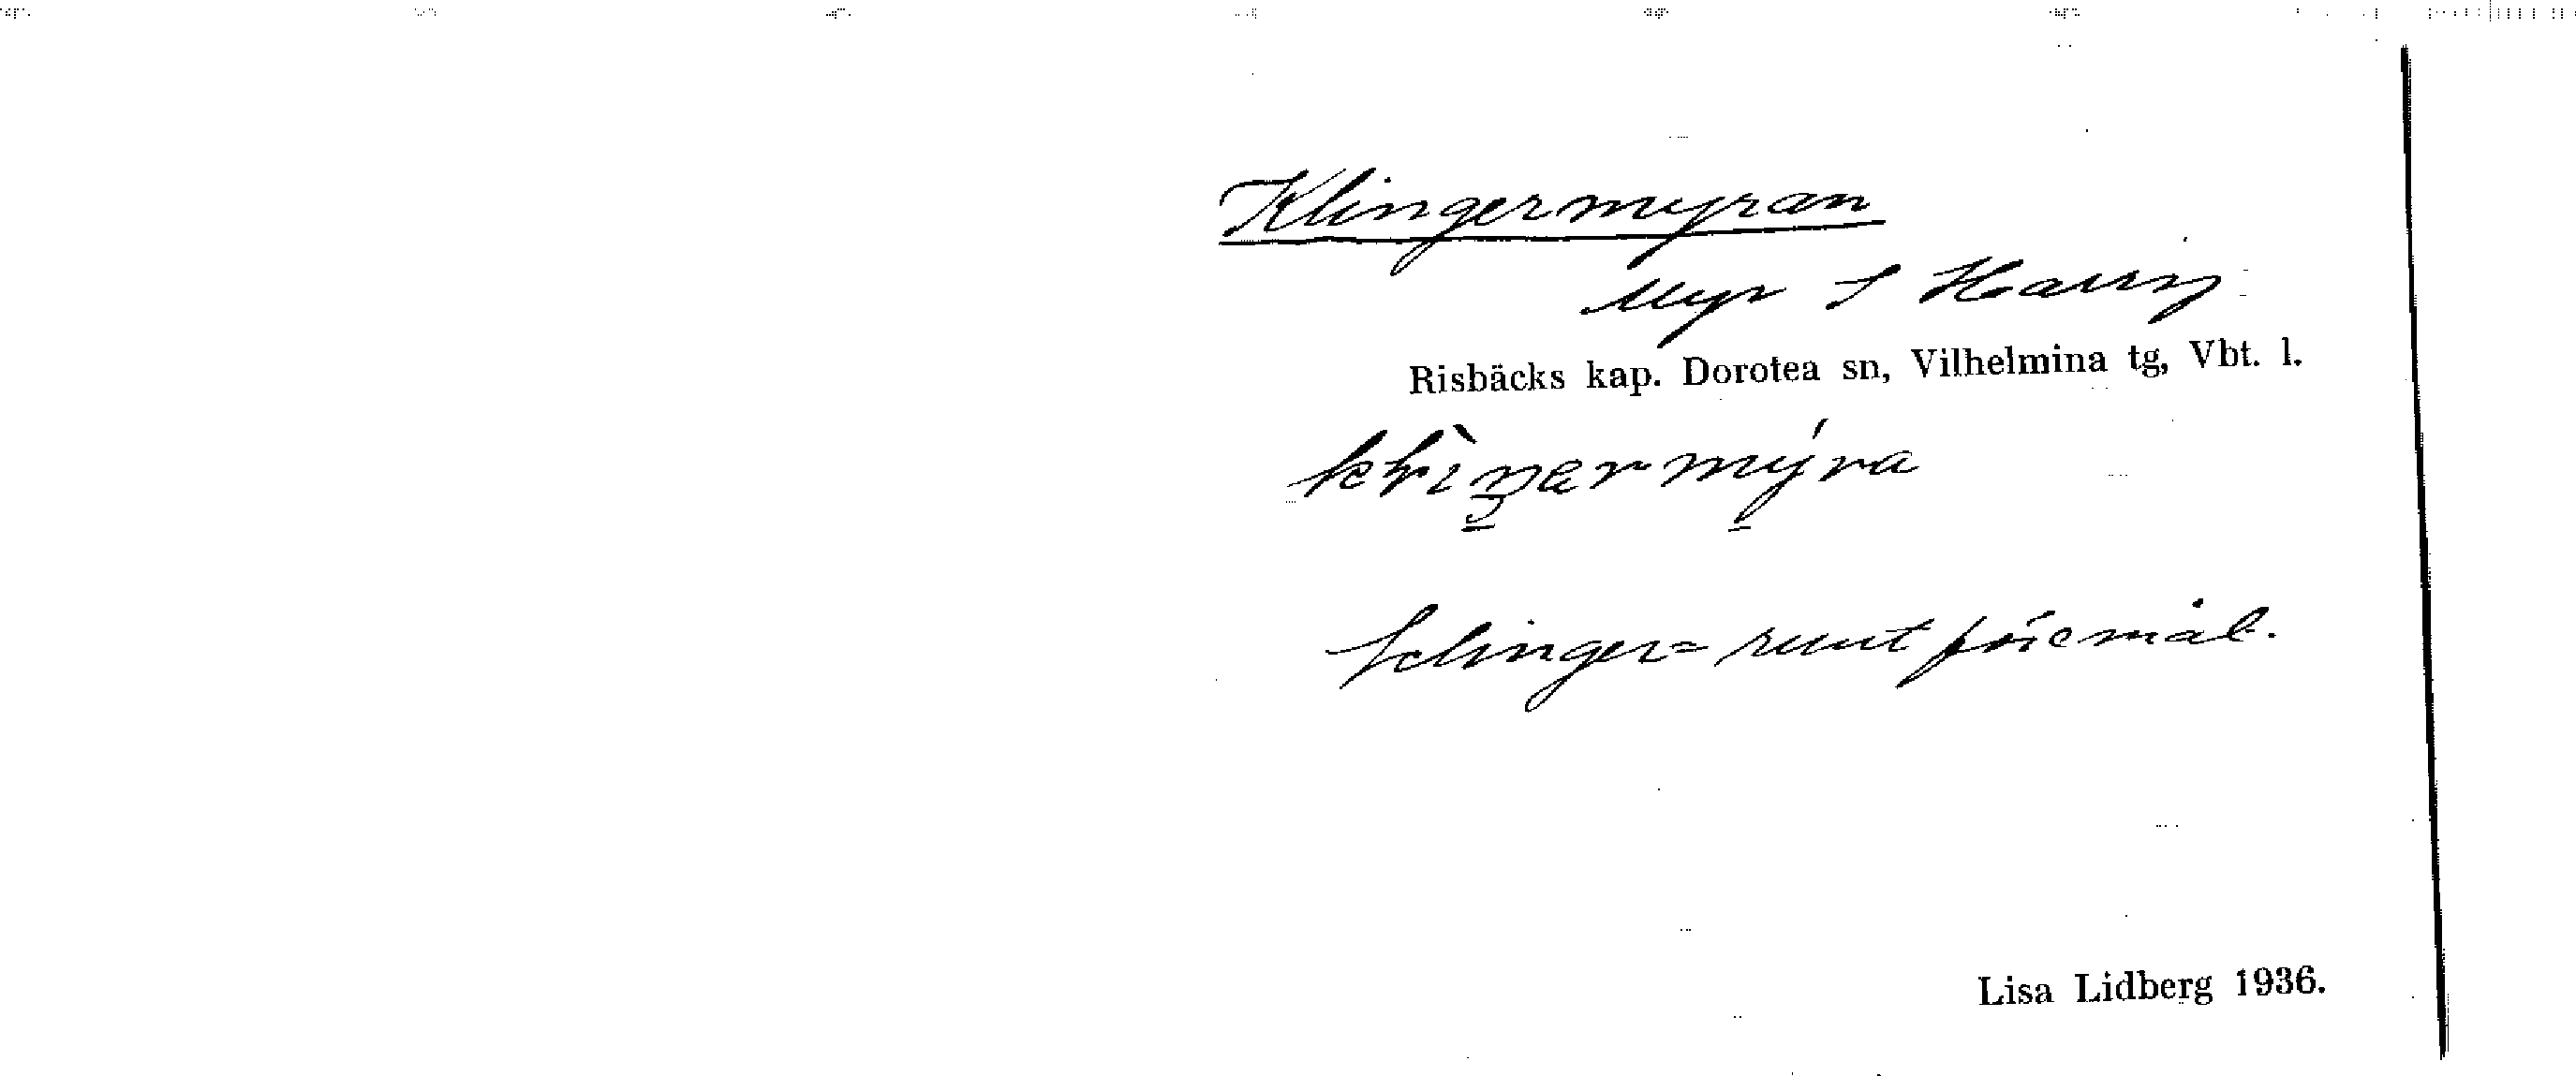 Klingermyran
Myr S Harrsj
Risbäcks kap. Dorotea sn, Vilhelmina tg, Vbt. l.
klinger= runt föremål.
Lisa Lidberg 1936.